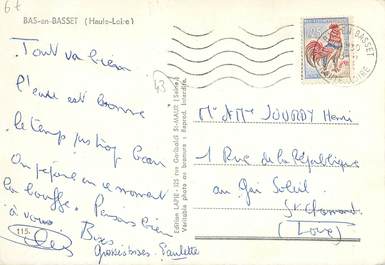 67
BAS-en-BASSET (Haute-Loire)
Tout va bien
l'eau est bonne
le temps pas trop beau
On prépare en ce moment
la bouffe. Pensons bien
à vous
Bises
Grosses bises. Paulette
115
43
Edition LAPIE - 125 rue Garibaldi St-MAUR (Seine)
Véritable photo au bromure : Reprod. Interdite.
Mr & Mme JOURDY Henri
1 Rue de la République
au Gai Soleil
St Chamond
(Loire)